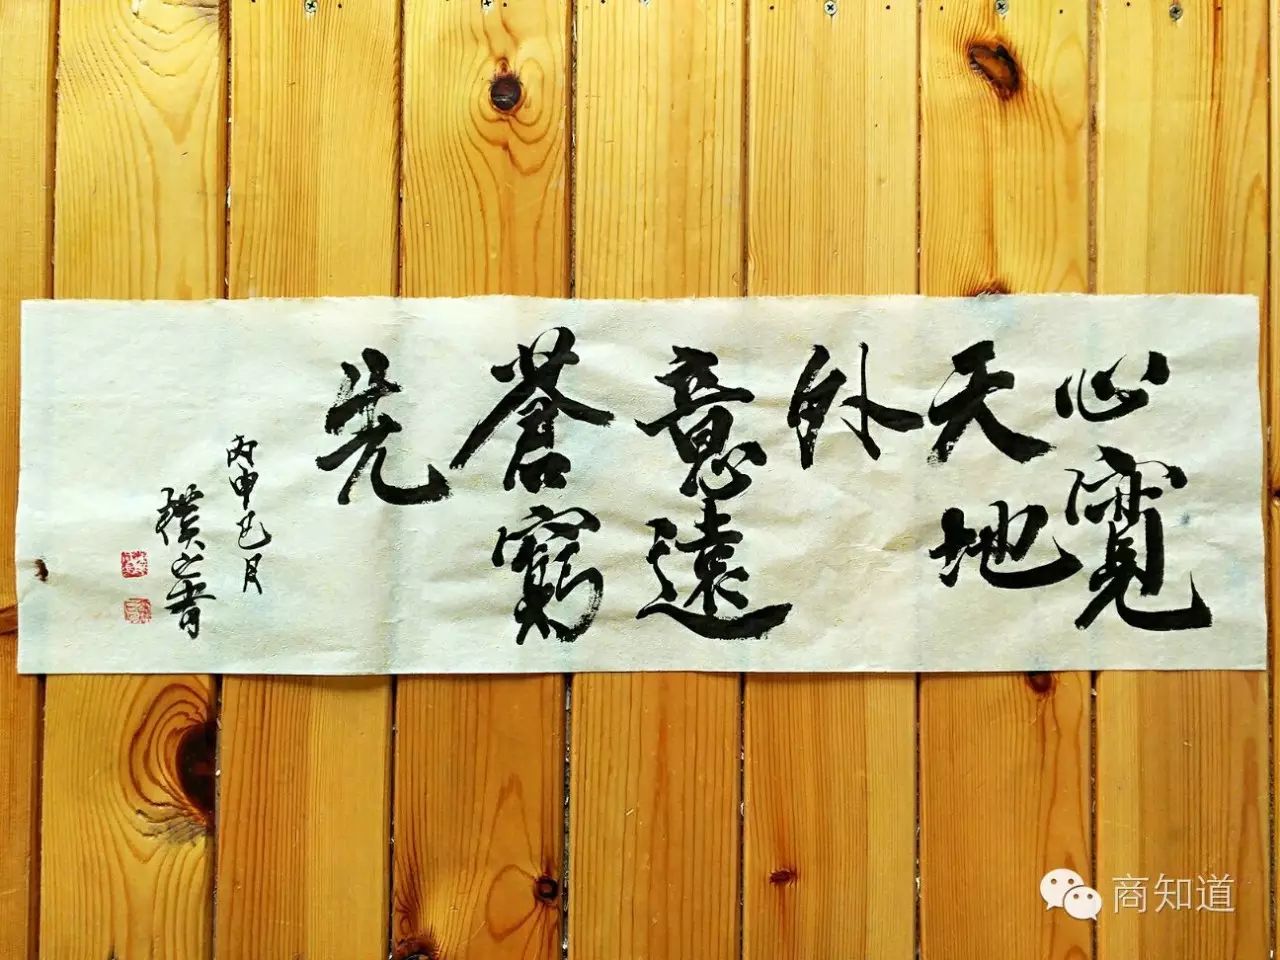 心寬
天地
外
意遠
蒼穹
先
丙申巳月
樸之書
商知道